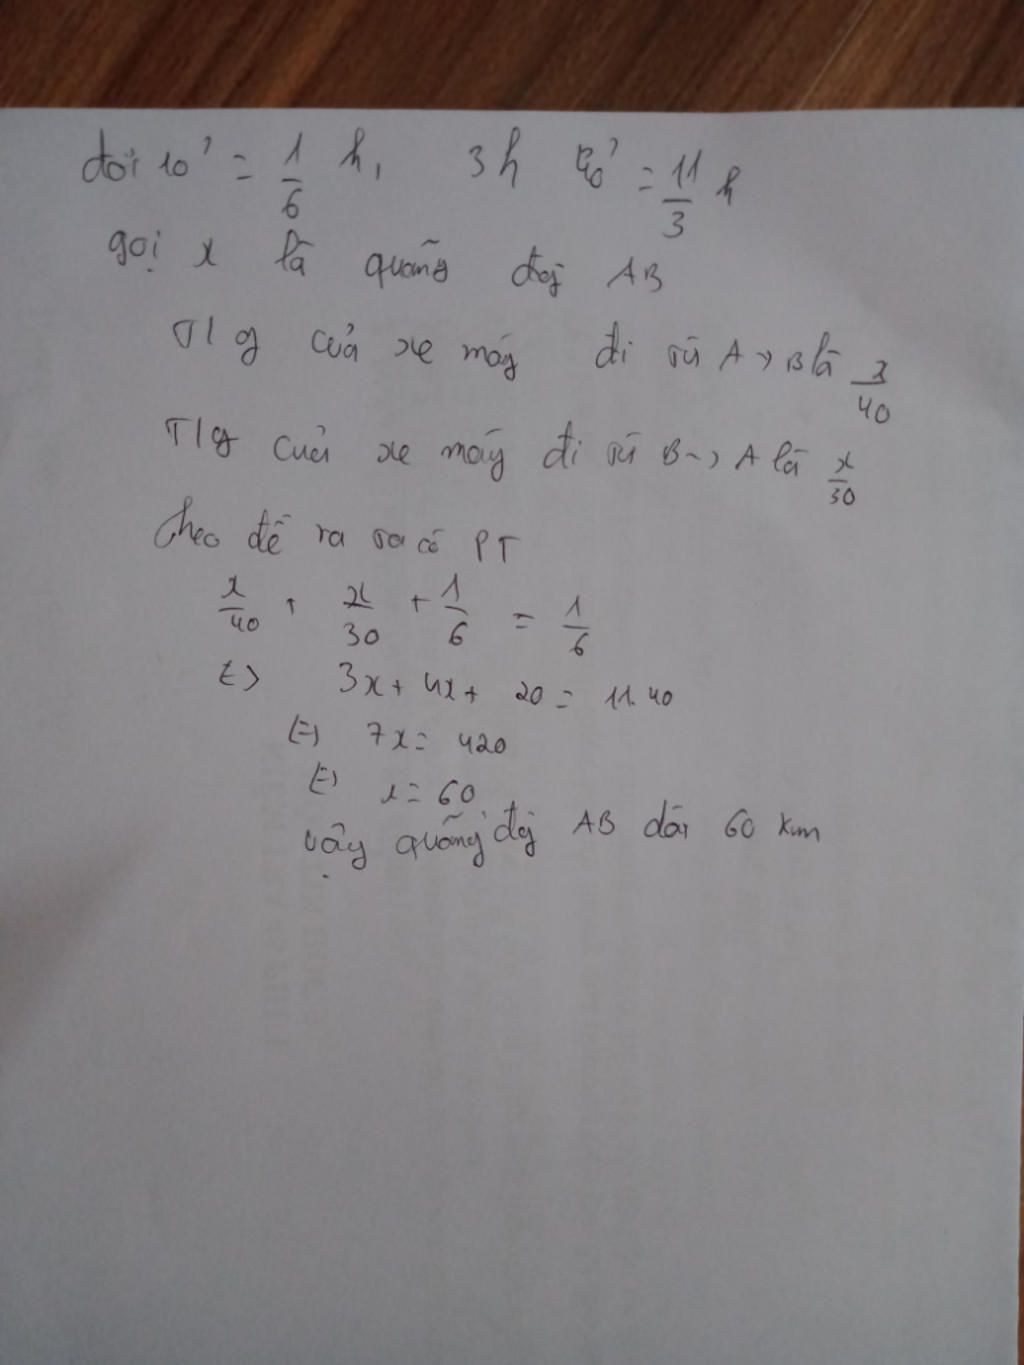 đổi 10' = 1/6 h, 3h 40' = 11/3 h
gọi x là quãng đg AB
T/g của xe máy đi từ A → B là x/40
T/g của xe máy đi từ B → A là x/30
theo đề ra ta có PT
x/40 + x/30 + 1/6 = 1/6
<=> 3x + 4x + 20 = 11.40
<=> 7x = 420
<=> x = 60
vậy quãng đg AB dài 60 km